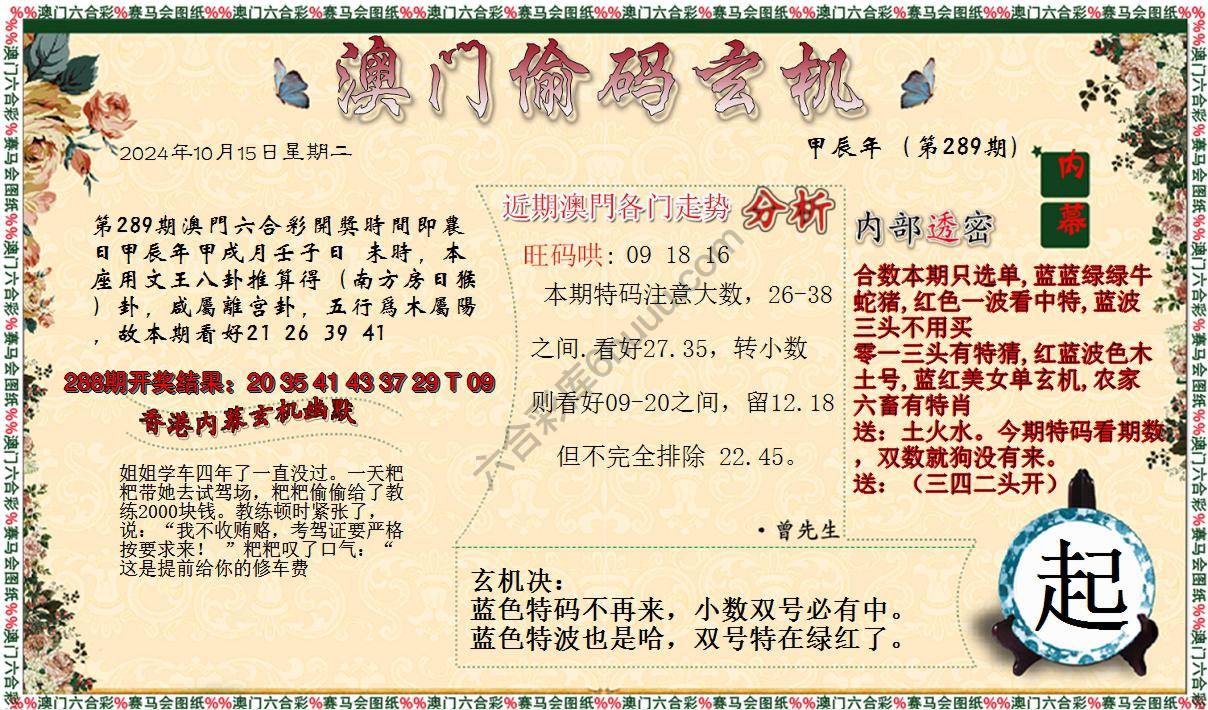 %%澳门六合彩%赛马会图纸%%澳门六合彩%赛马会图纸%%澳门六合彩%赛马会图纸%%澳门六合彩%赛马会图纸%%澳门六合彩%赛马会图纸%%澳门六合彩%赛马会图纸%%
澳门偷码玄机
2024年10月15日星期二
甲辰年（第289期）
内幕
第289期澳門六合彩開獎時間即農
日甲辰年甲戌月壬子日 未時，本
座用文王八卦推算得（南方房日猴
）卦，咸屬離宫卦，五行爲木屬陽
，故本期看好21 26 39 41
288期开奖结果：20 35 41 43 37 29 T 09
香港内幕玄机幽默
姐姐学车四年了一直没过。一天粑
粑带她去试驾场，粑粑偷偷给了教
练2000块钱。教练顿时紧张了，
说：“我不收贿赂，考驾证要严格
按要求来！ ”粑粑叹了口气：“
这是提前给你的修车费
近期澳門各门走势 分析
旺码哄: 09 18 16
本期特码注意大数，26-38
之间.看好27.35，转小数
则看好09-20之间，留12.18
但不完全排除 22.45。
·曾先生
内部透密
合数本期只选单,蓝蓝绿绿牛
蛇猪,红色一波看中特,蓝波
三头不用买
零一三头有特猜,红蓝波色木
土号,蓝红美女单玄机,农家
六畜有特肖
送：土火水。今期特码看期数
，双数就狗没有来。
送：（三四二头开）
玄机决：
蓝色特码不再来，小数双号必有中。
蓝色特波也是哈，双号特在绿红了。
起
%%澳门六合彩%赛马会图纸%%澳门六合彩%赛马会图纸%%澳门六合彩%赛马会图纸%%澳门六合彩%赛马会图纸%%澳门六合彩%赛马会图纸%%澳门六合彩%赛马会图纸%%